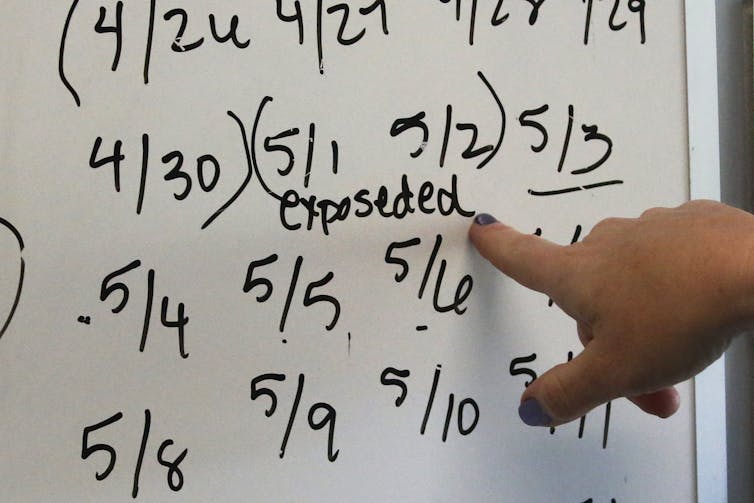 (4/26 4/27 4/28 4/29
4/30) (5/1 5/2) 5/3
exposeded
5/4 5/5 5/6
5/8 5/9 5/10 5/11